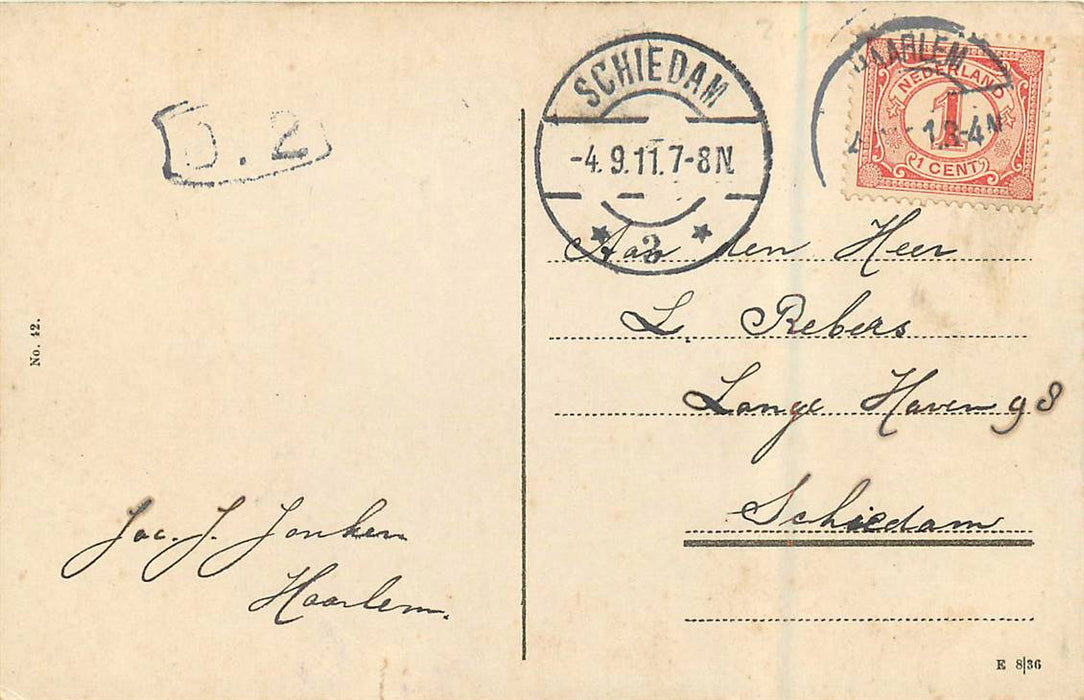 SCHIEDAM
-4.9.11.7-8N.
3
HAARLEM
3-4N
NEDERLAND
1
1 CENT
.2
No. 42.
Aan den Heer
L. Rebers
Lange Haven 98
Schiedam
Jac. J. Jonker
Haarlem.
E 8|36